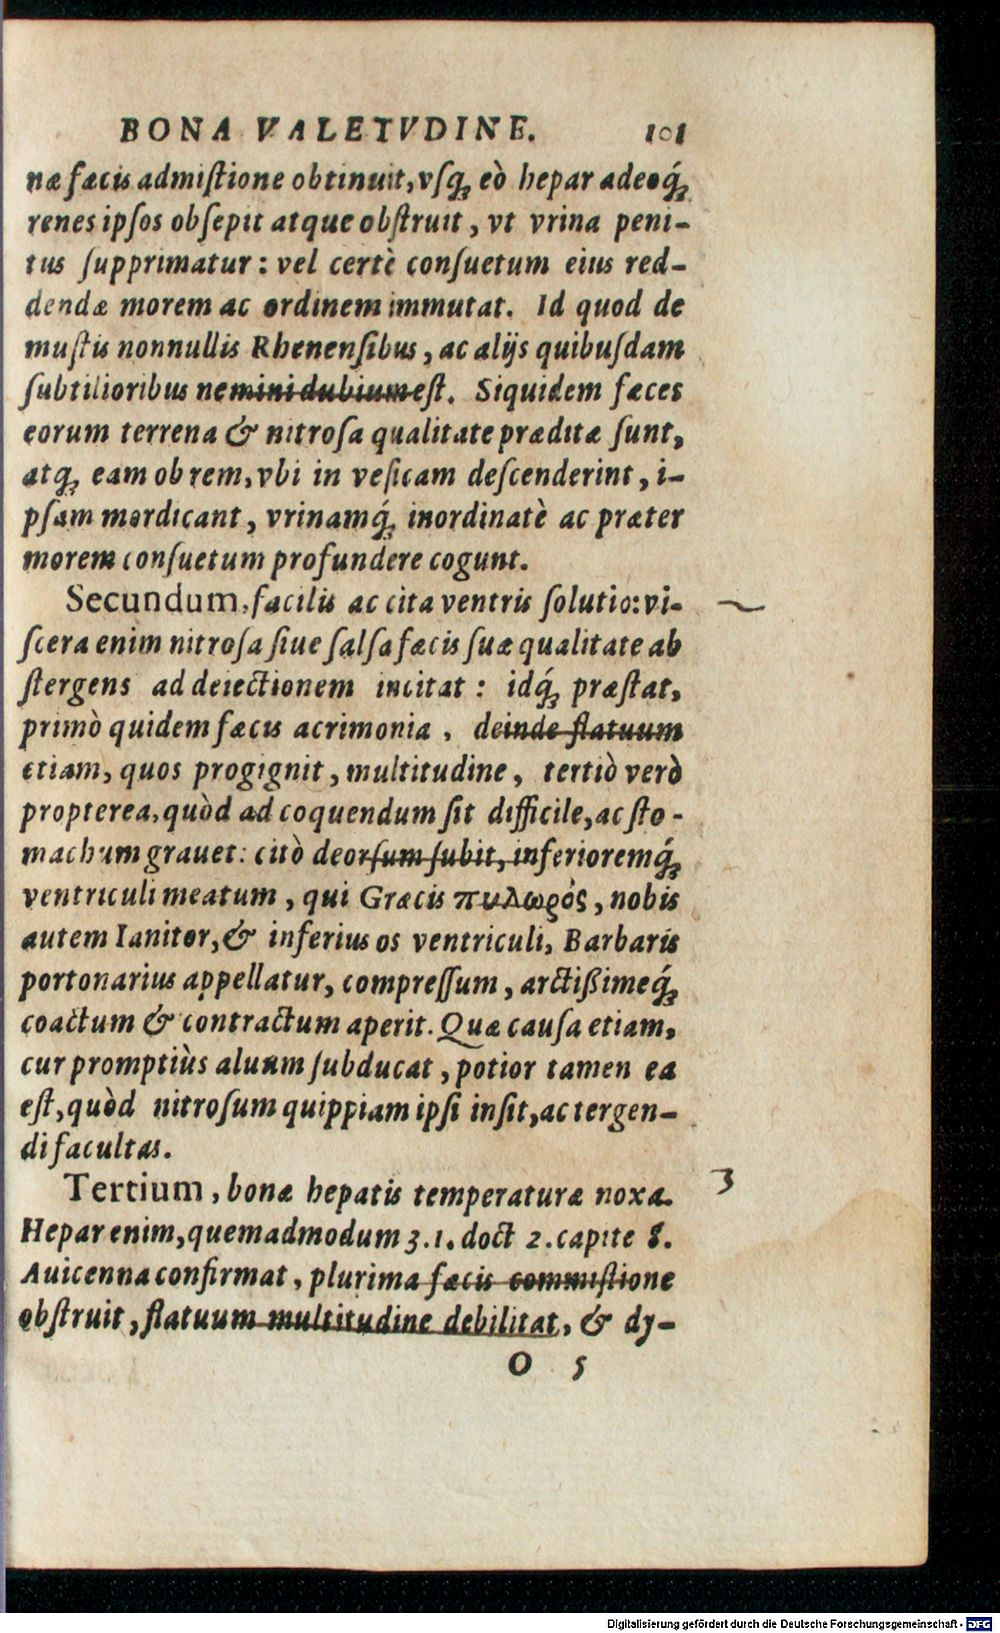 BONA VALETVDINE. 101
næ fæcis admiſtione obtinuit, vſq́; eò hepar adeoq́;
renes ipſos obſepit atque obſtruit, vt vrina peni-
tus ſupprimatur: vel certè conſuetum eius red-
dendæ morem ac ordinem immutat. Id quod de
muſtis nonnullis Rhenenſibus, ac alijs quibuſdam
ſubtilioribus nemini dubium eſt. Siquidem fæces
eorum terrena & nitroſa qualitate præditæ ſunt,
atq; eam ob rem, vbi in veſicam deſcenderint, i-
pſam mordicant, vrinamq́; inordinatè ac præter
morem conſuetum profundere cogunt.
Secundum, facilis ac cita ventris ſolutio: vi-
ſcera enim nitroſa ſiue ſalſa fæcis ſuæ qualitate ab
ſtergens ad deiectionem incitat: idq́; præſtat,
primò quidem fæcis acrimonia, deinde flatuum
etiam, quos progignit, multitudine, tertiò verò
propterea, quòd ad coquendum ſit difficile, ac ſto-
machum grauet: citò deorſum ſubit, inferioremq́;
ventriculi meatum, qui Græcis πυλωρὸς, nobis
autem Ianitor, & inferius os ventriculi, Barbaris
portonarius appellatur, compreſſum, arctißimeq́;
coactum & contractum aperit. Quæ cauſa etiam,
cur promptiùs aluum ſubducat, potior tamen ea
eſt, quòd nitroſum quippiam ipſi inſit, ac tergen-
di facultas.
Tertium, bonæ hepatis temperaturæ noxa. 3
Hepar enim, quemadmodum 3. 1. doct 2. capite 8.
Auicenna confirmat, plurima fæcis commiſtione
obſtruit, flatuum multitudine debilitat, & dy-
O 5
Digitalisierung gefördert durch die Deutsche Forschungsgemeinschaft - DFG